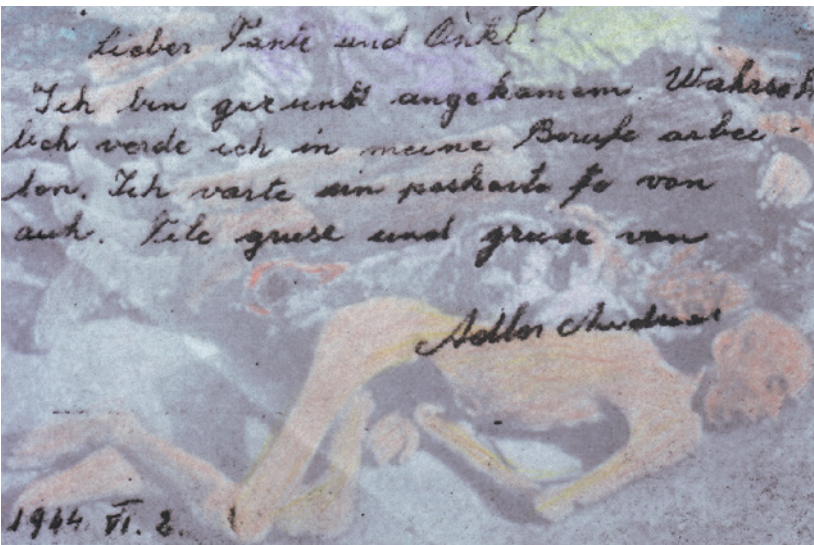 Lieber Tante und Onkl!
Ich bin gezund angekomem. Wahrsch
lich verde ich in meine Berufe arbei-
ten. Ich varte ein poskarte fo von
auh. File griese und gruse von
Adler Andreas
1944. VI. 2.